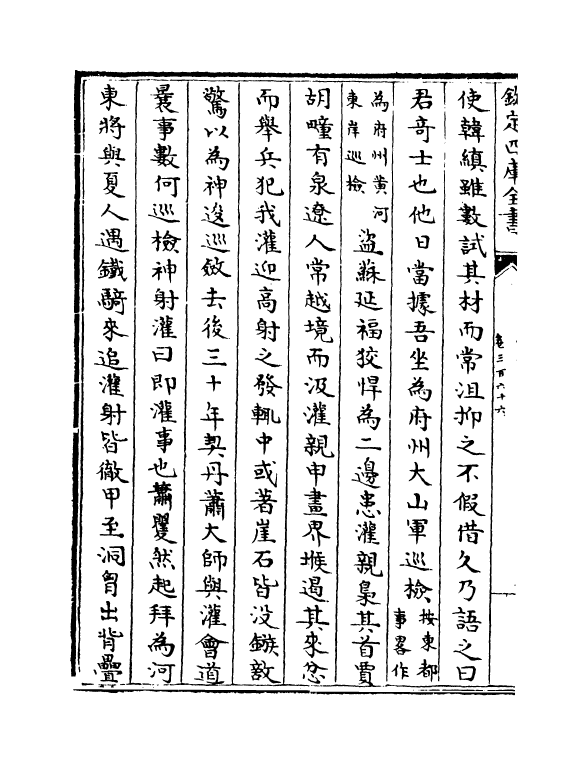 欽定四庫全書
卷三百六十六
使韓縝雖數試其材而常沮抑之不假借久乃語之曰
君奇士也他日當據吾坐為府州大山軍巡檢按東都
事畧作
為府州黄河
東岸巡檢
盜蘇延福狡悍為二邊患灌親梟其首賈
胡疃有泉遼人常越境而汲灌親申畫界堠遏其來忿
而舉兵犯我灌迎高射之發輒中或著崖石皆没鏃敵
驚以為神逡巡斂去後三十年契丹蕭大師與灌會道
曩事數何巡檢神射灌曰即灌事也蕭矍然起拜為河
東將與夏人遇鐵騎來追灌射皆徹甲至洞胷出背疊